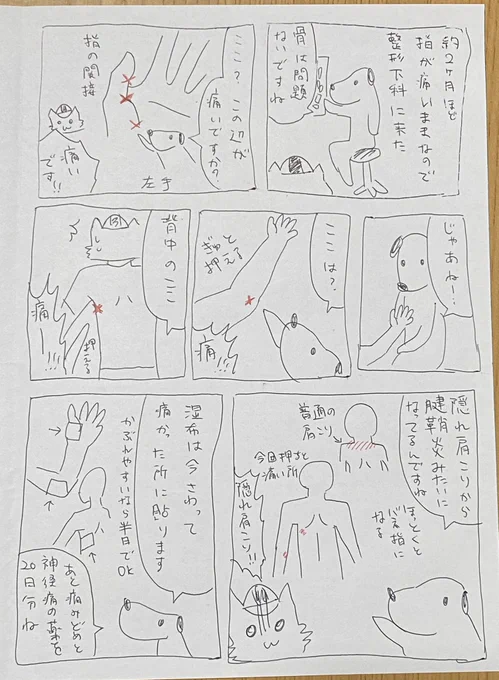 約2ヶ月ほど
指が痛いままなので
整形外科に来た
骨は問題
ないですね
ここ？この辺が
痛いですか？
指の関接
左手
痛い
です!!
じゃあねー…
ここは？
ぎゅっと
押える
痛!!
背中のここ
押える
痛ー!!!
隠れ肩こりから
腱鞘炎みたいに
なってるんですね
ほっとくと
バネ指に
なる
普通の
肩こり
今回押すと
痛い所
隠れ肩こり!!
湿布は今さわって
痛かった所に貼ります
かぶれやすいなら半日でOK
あと痛みどめと
神経痛の薬を
20日分ね